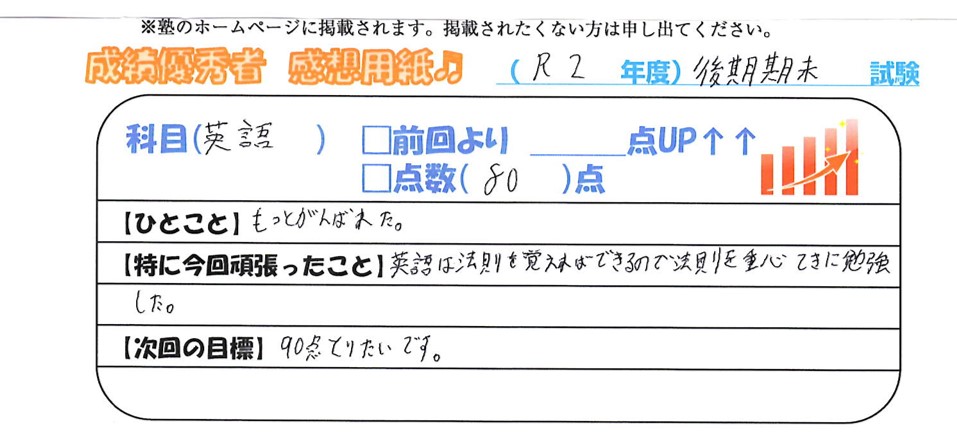 ※塾のホームページに掲載されます。掲載されたくない方は申し出てください。
成績優秀者 感想用紙♫ (R2 年度)後期期末 試験
科目(英語 ) □前回より 点UP↑↑
□点数(80 )点
【ひとこと】もっとがんばれた。
【特に今回頑張ったこと】英語は法則を覚えればできるので法則を重心てきに勉強
した。
【次回の目標】90点とりたいです。